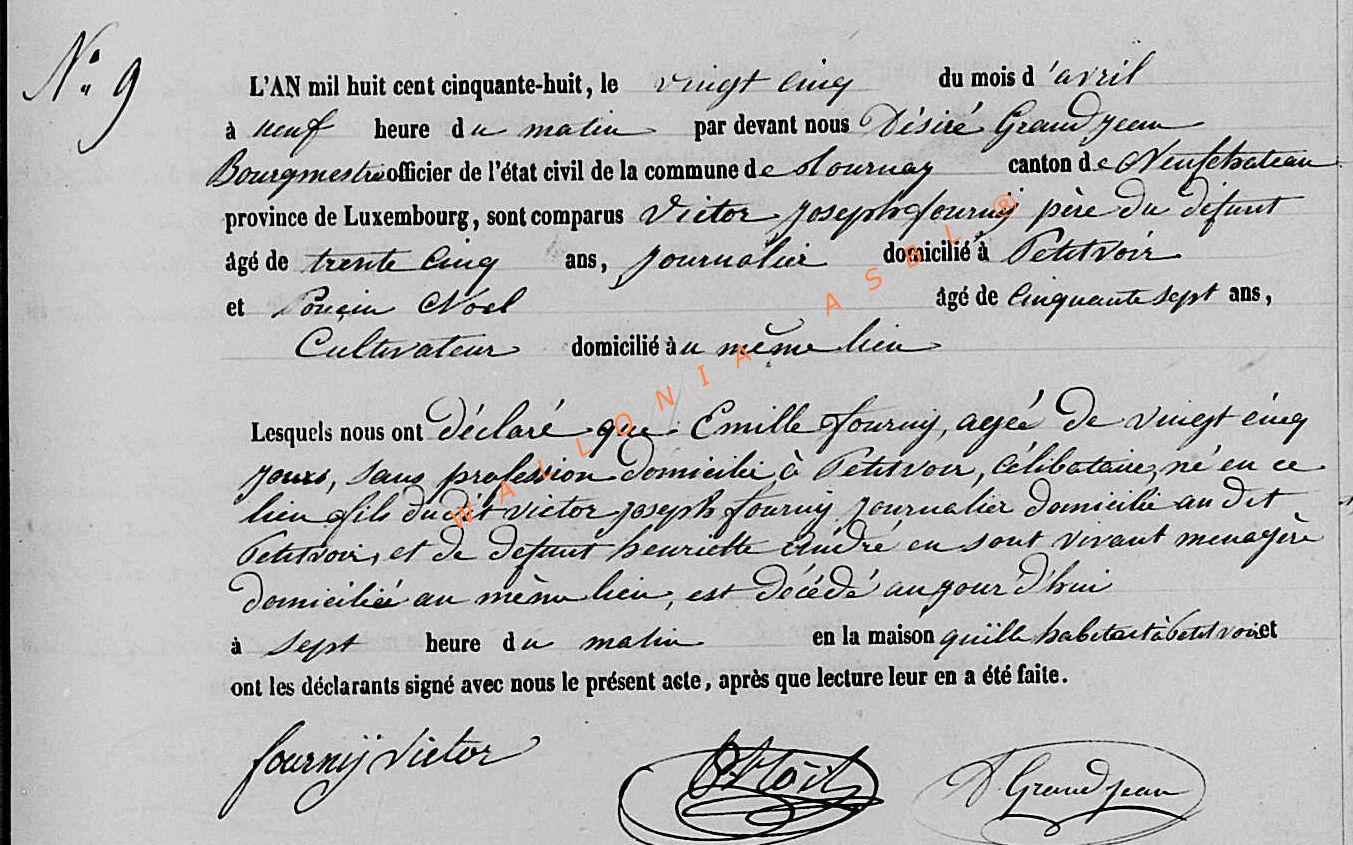 N° 9
L'AN mil huit cent cinquante-huit, le vingt cinq du mois d'avril
à neuf heure du matin par devant nous Désiré Grandjean
Bourgmestre officier de l'état civil de la commune de Tournay canton de Neufchateau
province de Luxembourg, sont comparus Victor Joseph fourny père du défunt
âgé de trente cinq ans, journalier domicilié à Petitvoir
et Noel âgé de cinquante sept ans,
Cultivateur domicilié au même lieu
Lesquels nous ont déclaré que Emille fourny, agée de vingt cinq
jours, sans profession domicilié à Petitvoir, célibataire, né en ce
lieu fils dudit victor joseph fourny journalier domicilié au dit
Petitvoir, et de defunt henriette André en sont vivant menagère
domiciliée au même lieu, est décédé au jour d'hui
à sept heure du matin en la maison qu'ille habitait à petitvoir et
ont les déclarants signé avec nous le présent acte, après que lecture leur en a été faite.
fournÿ Victor
P Noël
D Grandjean
WALLONIA ASBL ®